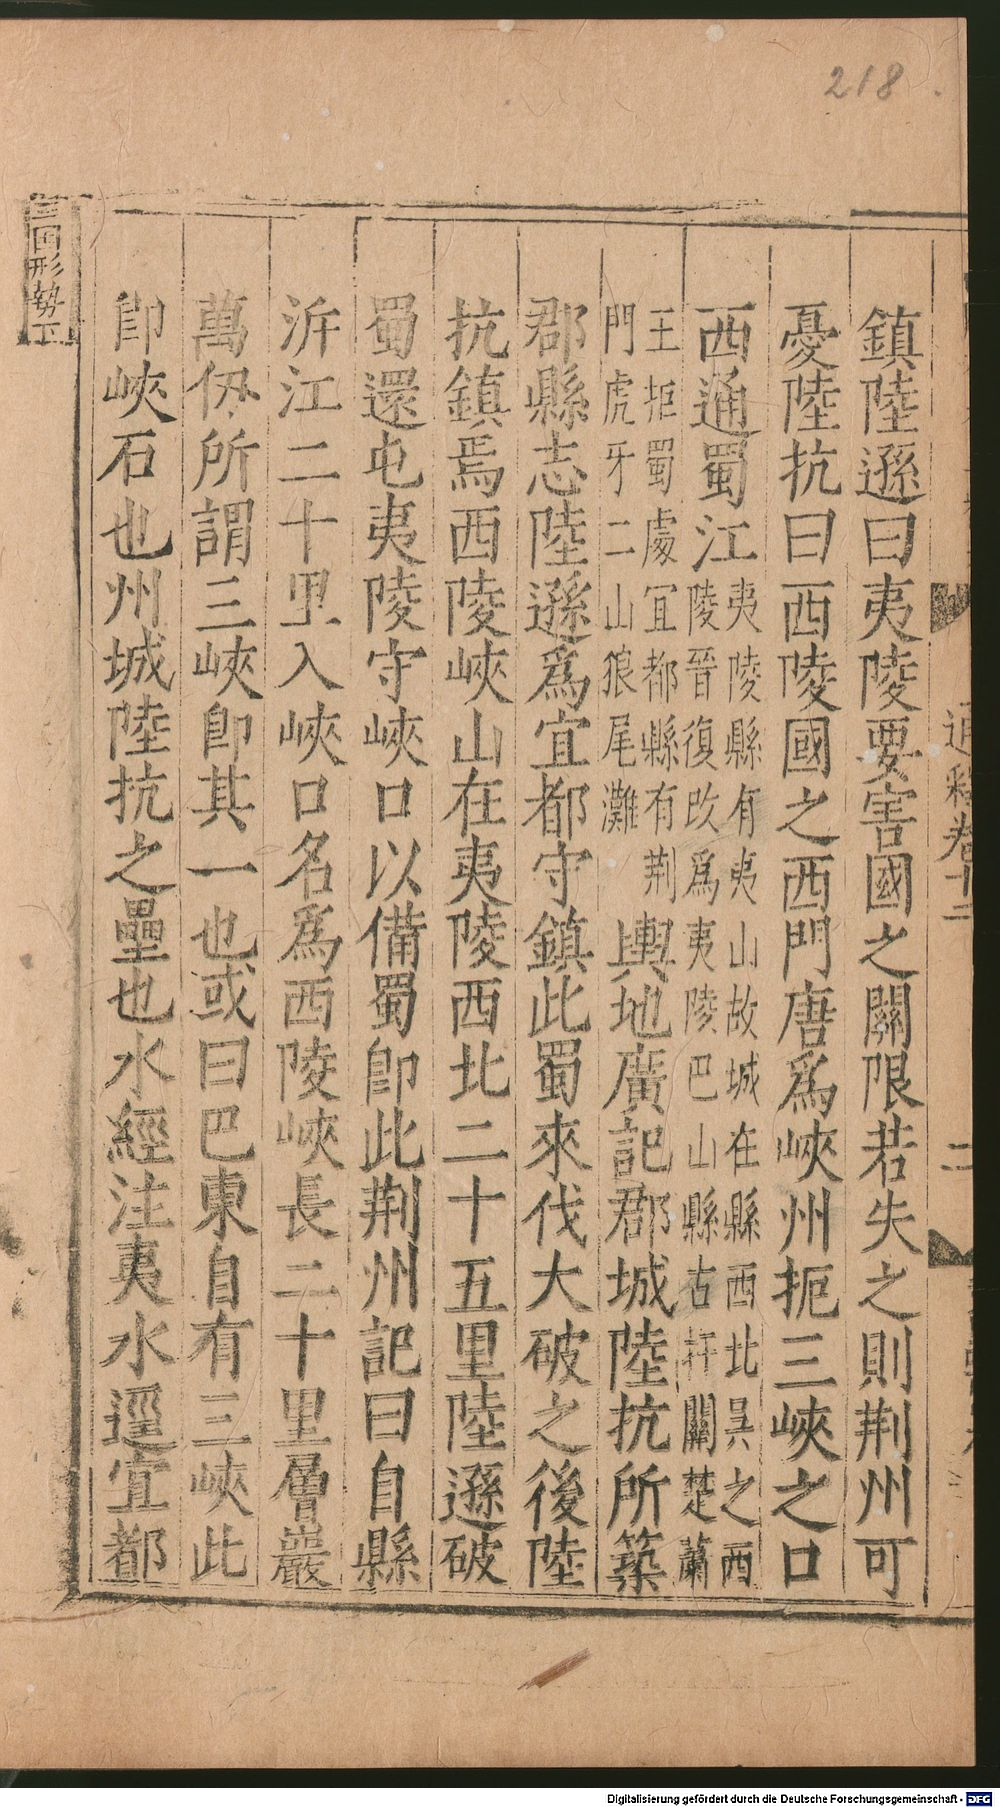 218
鎮陸遜曰夷陵要害國之關限若失之則荆州可
憂陸抗曰西陵國之西門唐爲峽州扼三峽之口
西通蜀江
夷陵縣有夷山故城在縣西北吴之西
陵晉復改爲夷陵巴山縣古扞關楚蘭
王拒蜀處宜都縣有荆
門虎牙二山狼尾灘
輿地廣記郡城陸抗所築
郡縣志陸遜爲宜都守鎮此蜀來伐大破之後陸
抗鎮焉西陵峽山在夷陵西北二十五里陸遜破
蜀還屯夷陵守峽口以備蜀卽此荆州記曰自縣
泝江二十里入峽口名爲西陵峽長二十里層巖
萬仞所謂三峽卽其一也或曰巴東自有三峽此
卽峽石也州城陸抗之壘也水經注夷水逕宜都
三国形勢下
通釋卷十二
二
Digitalisierung gefördert durch die Deutsche Forschungsgemeinschaft - DFG